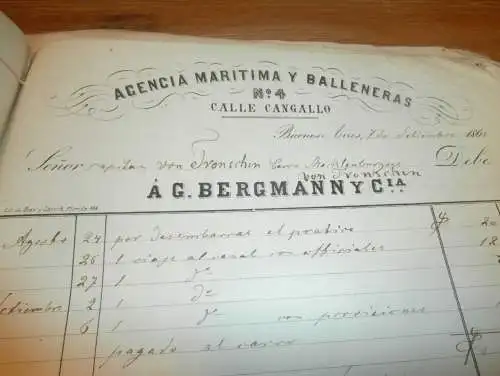 AGENCIA MARITIMA Y BALLENERAS
Nº. 4
CALLE CANGALLO
Buenos Aires, 7 de Setiembre 186
Señor capitan von Tronschin Debe
von Tronschin
Á G. BERGMANN Y CIA.
Agosto 24 por desembarcar el practico
26 1 viaje al vapor con officiales
27 1 do
Setiembre 2 1 do
6 1 do con provisiones
pagado el carro